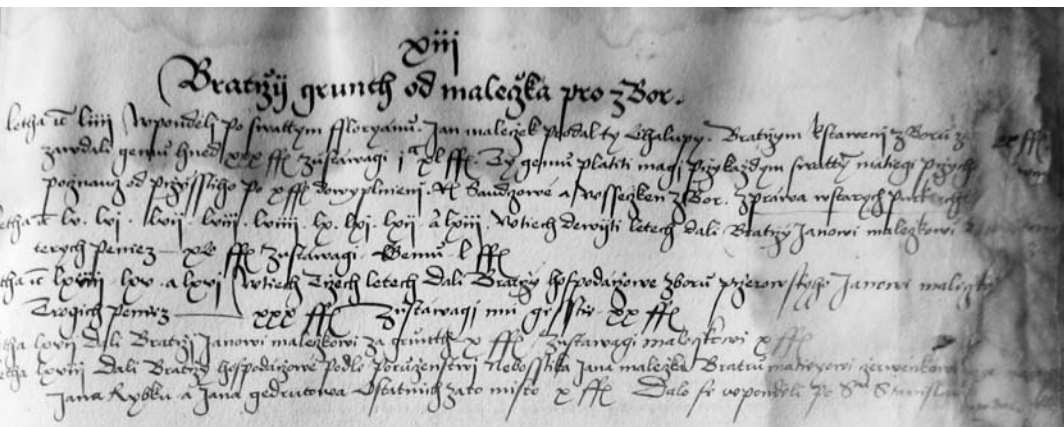 xiij
Bratrzij grunth od maležka pro zbor.
letha ic liiij W pondeli po swattym ffloryanu. Jan maležek prodal ty Chalupy. Bratrzym k staweni zboru za
zawdali gemu hned xxx ffl zustawagi jᵃ xl ffl. Ty gemu platiti magi przy każdym swattem mattiegi przych
pocznauz od przysstiho po x ffl do wyplnieni. Rk Saudzowe a wssecken zbor. zprawa w starych
letha ic lv. lvj. lvij. lviij. lviiij. lx. lxj. lxij. a lxiij. W tiech dewijti letech dali Bratrzy Janowi maležkowi
terych peniez — xc ffl zustawagi. Gemu. l ffl
letha ic lxiiij. lxv. a lxvj W tiech Trzech letech dali Bratrzy hospodarzowe zboru przerowskyho Janowi maležko
Trogich peniez — xxx ffl zustawagi mu gesstie. xx ffl
letha lxvij dali Bratrzy Janowi maležkowi za grunth x ffl zustawagi maležkowi x ffl
letha lxviij dali Bratrzy hospodarzowe podle poruczenstwi nebosstika Jana maležka Bratru matiegowi czerwenkowi
Jana Rybku a Jana ostatnich za to misto x ffl Dalo se w pondeli po Sᵐ Stanislaw